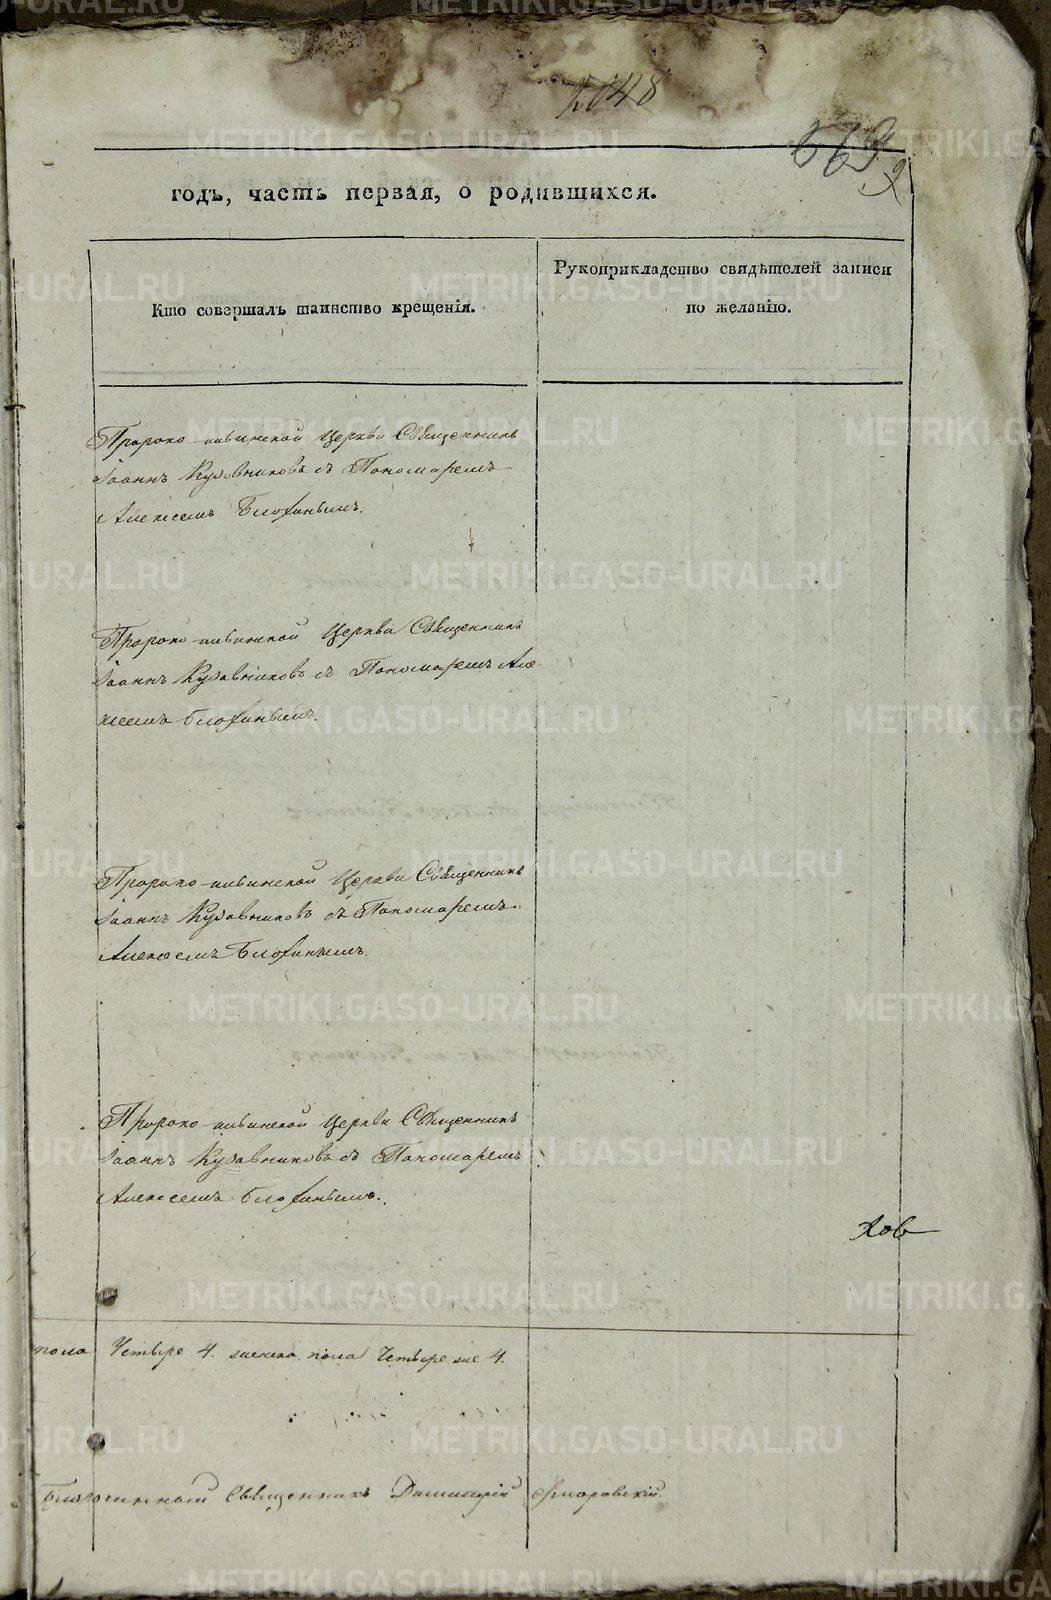 1048
годъ, часть первая, о родившихся.
Кто совершалъ таинство крещенія.
Рукоприкладство свидѣтелей записи
по желанію.
Пророко-ильинской церкви Священникъ
Іоаннъ Кузовниковъ съ Пономаремъ
Алексеемъ Блохинымъ.
Пророко-ильинской церкви Священникъ
Іоаннъ Кузовниковъ съ Пономаремъ Але
ксеемъ Блохинымъ.
Пророко-ильинской церкви Священникъ
Іоаннъ Кузовниковъ съ Пономаремъ
Алексеемъ Блохинымъ.
Пророко-ильинской церкви Священникъ
Іоаннъ Кузовниковъ съ Пономаремъ
Алексеемъ Блохинымъ.
хов
пола Четыре 4. женска пола Четыре же 4.
Благочинный Священникъ Димитрій
METRIKI.GASO-URAL.RU